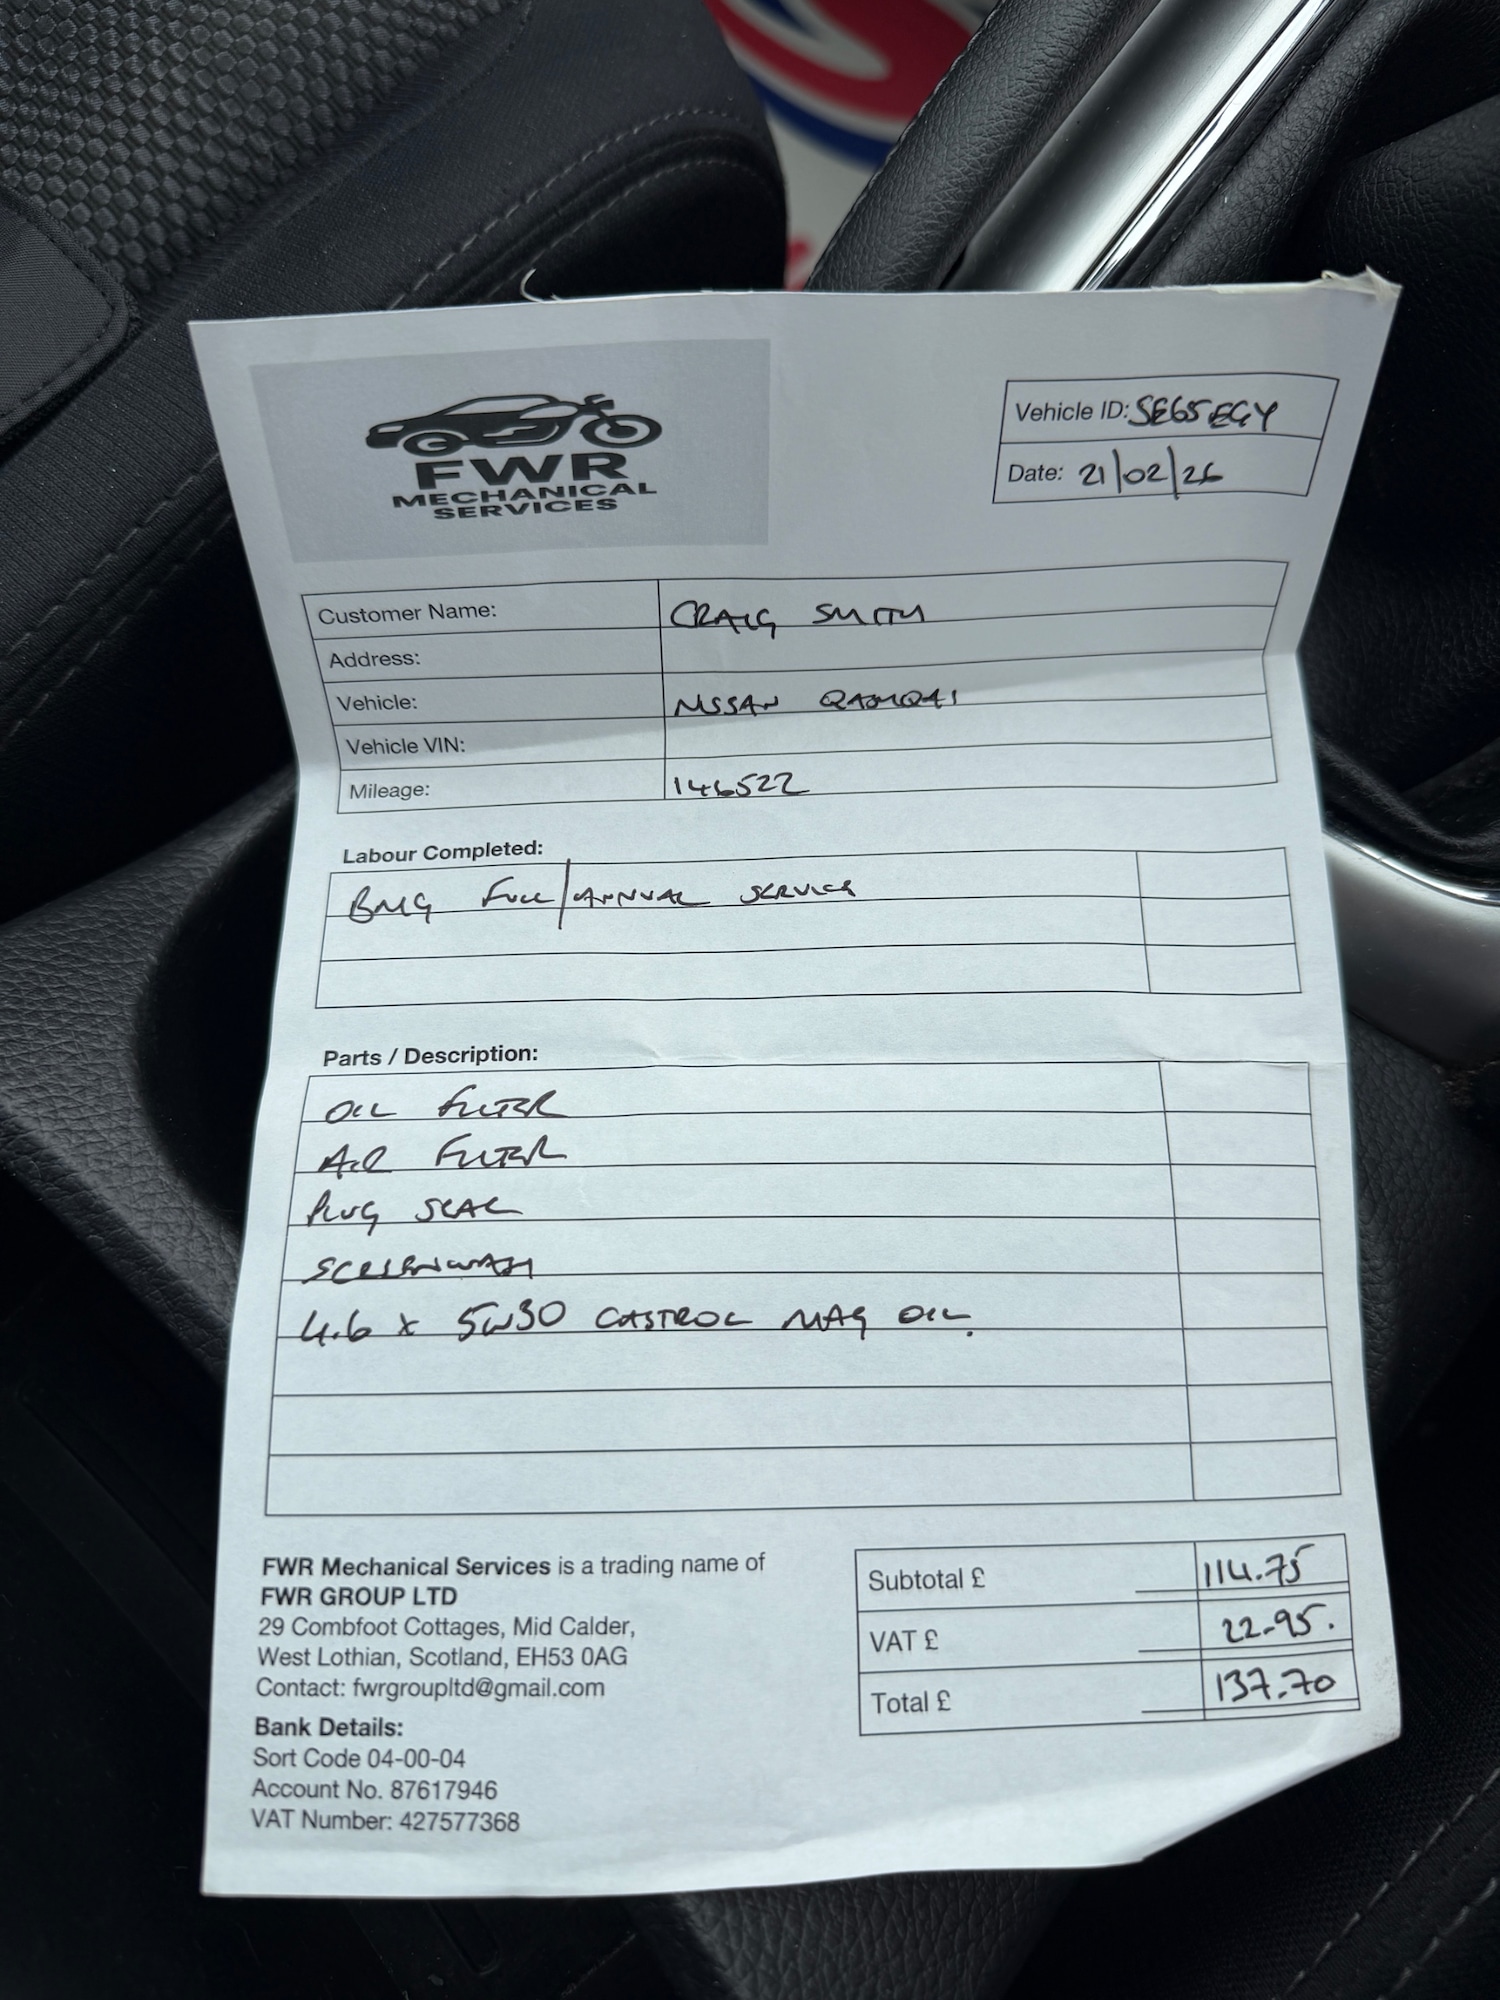 FWR
MECHANICAL
SERVICES
Vehicle ID: SE65EGY
Date: 21/02/26
Customer Name: CRAIG SMITH
Address:
Vehicle: NISSAN QASHQAI
Vehicle VIN:
Mileage: 146522
Labour Completed:
BMG FULL/ANNUAL SERVICE
Parts / Description:
OIL FILTER
AIR FILTER
PLUG SEAL
SCREENWASH
4.6 x 5W30 CASTROL MAG OIL.
FWR Mechanical Services is a trading name of
FWR GROUP LTD
29 Combfoot Cottages, Mid Calder,
West Lothian, Scotland, EH53 0AG
Contact: fwrgroupltd@gmail.com
Bank Details:
Sort Code 04-00-04
Account No. 87617946
VAT Number: 427577368
Subtotal £ 114.75
VAT £ 22.95.
Total £ 137.70